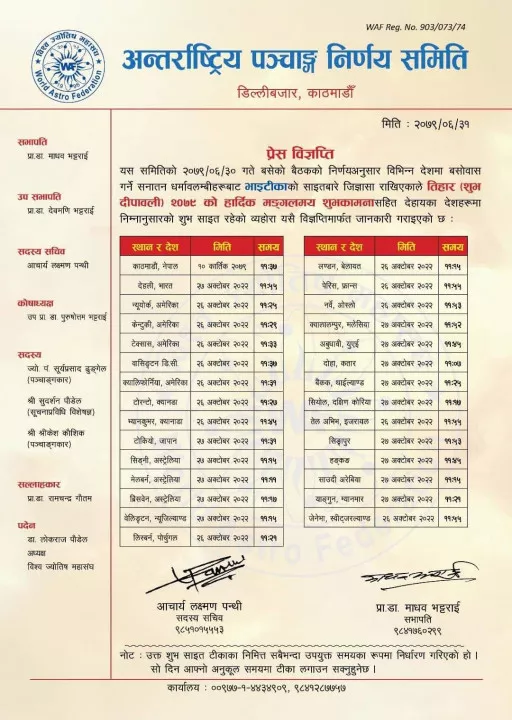 WAF Reg. No. 903/073/74
विश्व ज्योतिष महासंघ
WAF
World Astro Federation
अन्तर्राष्ट्रिय पञ्चाङ्ग निर्णय समिति
डिल्लीबजार, काठमाडौँ
मिति : २०७९/०६/३१
सभापति
प्रा.डा. माधव भट्टराई
उप सभापति
प्रा.डा. देवमणि भट्टराई
सदस्य सचिव
आचार्य लक्ष्मण पन्थी
कोषाध्यक्ष
उप प्रा. डा. पुरुषोत्तम भट्टराई
सदस्य
ज्यो. पं. सूर्यप्रसाद ढुङ्गेल
(पञ्चाङ्गकार)
श्री सुदर्शन पौडेल
(सूचनाप्रविधि विशेषज्ञ)
श्री श्रीकेश कौशिक
(पञ्चाङ्गकार)
सल्लाहकार
प्रा.डा. रामचन्द्र गौतम
पदेन
डा. लोकराज पौडेल
अध्यक्ष
विश्व ज्योतिष महासंघ
प्रेस विज्ञप्ति
यस समितिको २०७९/०६/३० गते बसेको बैठकको निर्णयअनुसार विभिन्न देशमा बसोवास
गर्ने सनातन धर्मावलम्बीहरूबाट भाइटीकाको साइतबारे जिज्ञासा राखिएकाले तिहार (शुभ
दीपावली) २०७९ को हार्दिक मङ्गलमय शुभकामनासहित देहायका देशहरूमा
निम्नानुसारको शुभ साइत रहेको व्यहोरा यसै विज्ञप्तिमार्फत जानकारी गराइएको छ :
स्थान र देश मिति समय
काठमाडौं, नेपाल १० कार्तिक २०७९ ११:३७
देहली, भारत २७ अक्टोबर २०२२ ११:५५
न्यूयोर्क, अमेरिका २६ अक्टोबर २०२२ ११:२५
केन्टुकी, अमेरिका २६ अक्टोबर २०२२ ११:२९
टेक्सास, अमेरिका २६ अक्टोबर २०२२ ११:३३
वासिङ्टन डि.सी. २६ अक्टोबर २०२२ ११:३७
क्यालिफोर्निया, अमेरिका २६ अक्टोबर २०२२ ११:३१
टोरन्टो, क्यानडा २६ अक्टोबर २०२२ ११:२७
भ्यानकुभर, क्यानाडा २६ अक्टोबर २०२२ ११:४५
टोकियो, जापान २७ अक्टोबर २०२२ ११:३१
सिड्नी, अस्ट्रेलिया २७ अक्टोबर २०२२ ११:१५
मेलबर्न, अस्ट्रेलिया २७ अक्टोबर २०२२ ११:११
ब्रिसवेन, अस्ट्रेलिया २७ अक्टोबर २०२२ ११:१७
वेलिङ्टन, न्यूजिल्याण्ड २७ अक्टोबर २०२२ ११:१५
लिस्बर्न, पोर्चुगल २६ अक्टोबर २०२२ ११:२१
स्थान र देश मिति समय
लण्डन, बेलायत २६ अक्टोबर २०२२ ११:१५
पेरिस, फ्रान्स २६ अक्टोबर २०२२ ११:५५
नर्वे, ओस्लो २६ अक्टोबर २०२२ ११:५३
क्वालालम्पुर, मलेसिया २७ अक्टोबर २०२२ ११:५२
अबुधावी, युएई २७ अक्टोबर २०२२ ११:४५
दोहा, कतार २७ अक्टोबर २०२२ ११:०७
बैंकक, थाईल्याण्ड २७ अक्टोबर २०२२ ११:२५
सियोल, दक्षिण कोरिया २७ अक्टोबर २०२२ ११:१७
तेल अभिभ, इजरायल २६ अक्टोबर २०२२ ११:५५
सिङ्गापुर २७ अक्टोबर २०२२ ११:५३
हङकङ २७ अक्टोबर २०२२ ११:४५
साउदी अरेबिया २७ अक्टोबर २०२२ ११:१५
याङ्गुन, म्यानमार २७ अक्टोबर २०२२ ११:२१
जेनेभा, स्वीट्जरल्याण्ड २६ अक्टोबर २०२२ ११:५५
आचार्य लक्ष्मण पन्थी
सदस्य सचिव
९८५१०१५५५३
प्रा.डा. माधव भट्टराई
सभापति
९८४१७६०२९९
नोट : उक्त शुभ साइत टीकाका निमित्त सबैभन्दा उपयुक्त समयका रूपमा निर्धारण गरिएको हो ।
सो दिन आफ्नो अनुकूल समयमा टीका लगाउन सक्नुहुनेछ ।
कार्यालय : ००९७७-१-४४३४९०९, ९८४१२८७७५७